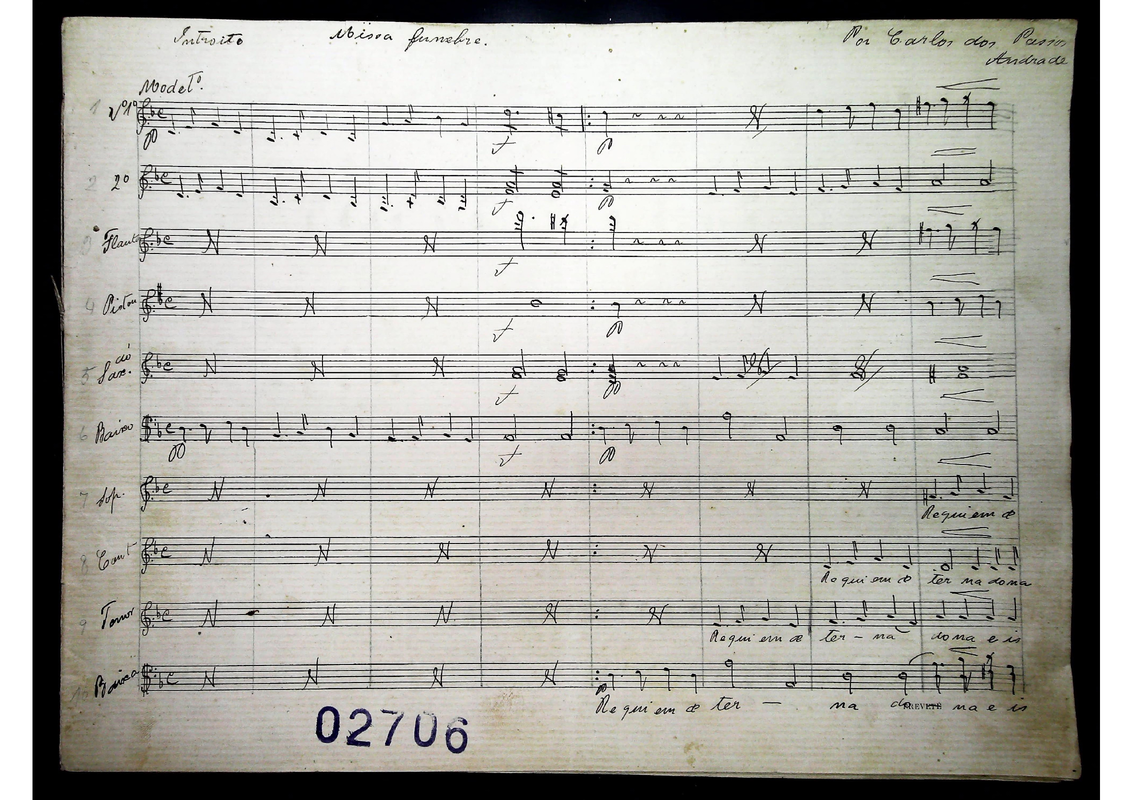 Introito Missa funebre. Por Carlos dos Passos
Andrade
Modetº.
1 Vº1º
2 2º
3 Flauta
4 Piston
5 Sax. dó
6 Baixo
7 Sop.
8 Cont
9 Tenor
10 Baixa
Requi em æ
Requi em æ ter na dona
Requi em æ ter - na dona e is
Requi em æ ter — na do na e is
PREVETE
02706